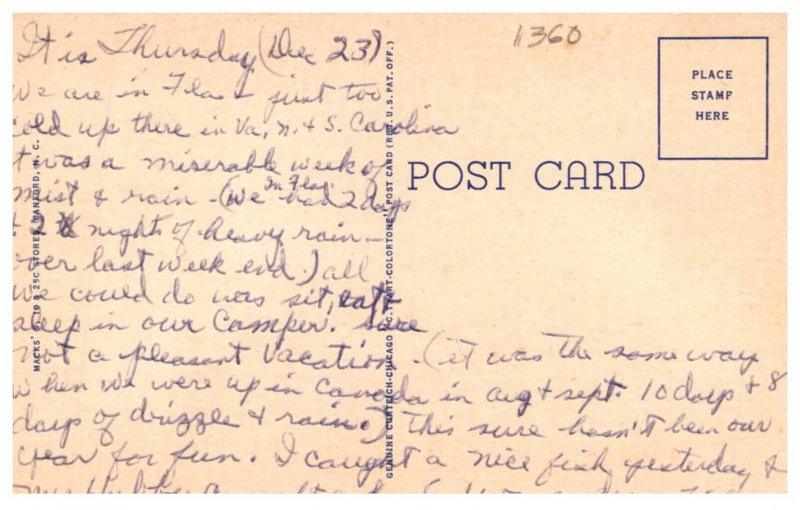 11360
It is Thursday (Dec 23)
We are in Fla + just too
cold up there in Va, N. & S. Carolina
it was a miserable week of
mist & rain - (We in Fla. had 2 days
+ 2 nights of heavy rain -
over last week end.) all
we could do was sit, eat +
sleep in our Camper. Sure
not a pleasant Vacation. (it was the same way
when we were up in Canada in aug + sept. 10 days + 8
days of drizzle + rain.) This sure hasn't been our
year for fun. I caught a nice fish yesterday +
PLACE
STAMP
HERE
POST CARD
MACKS' 5, 10 & 25C STORES, SANFORD, N. C.
GENUINE CURTEICH-CHICAGO "C.T. ART-COLORTONE" POST CARD (REG. U.S. PAT. OFF.)